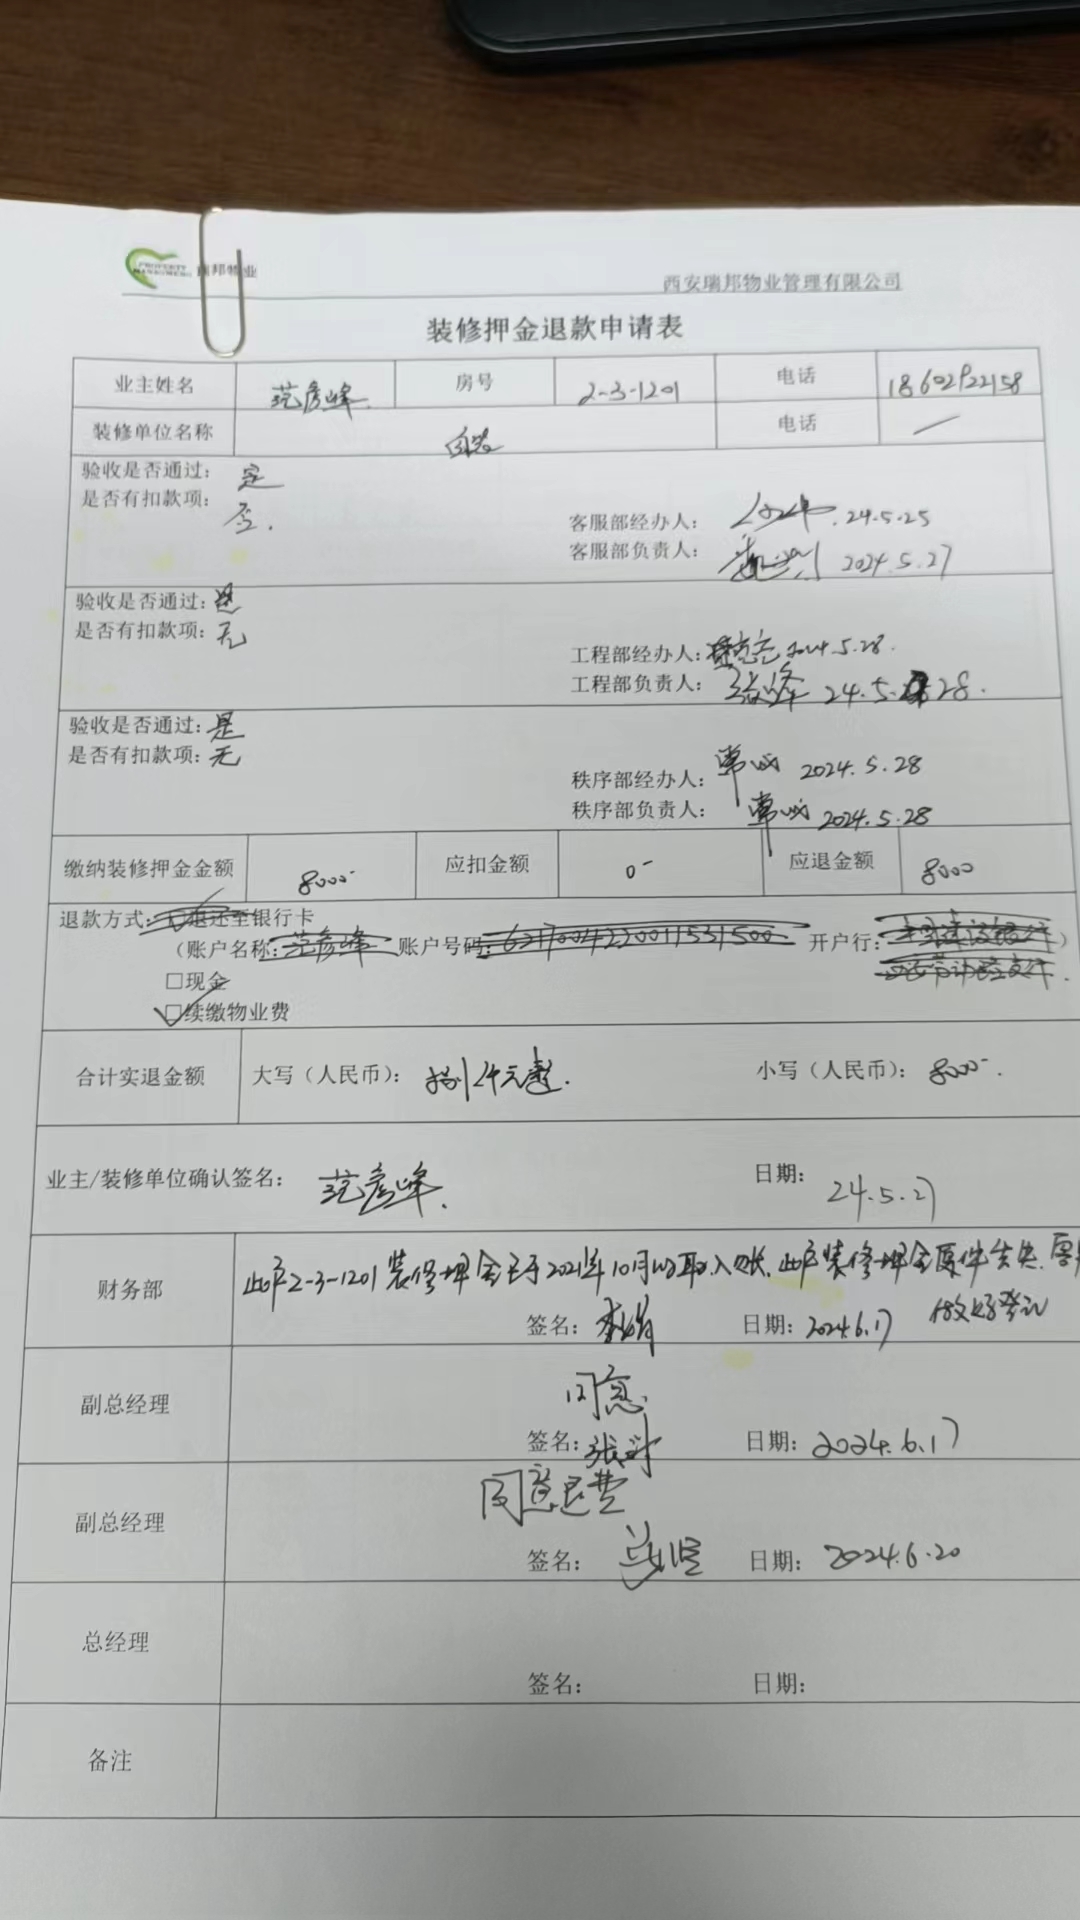 PROPERTY
MANAGMENG 瑞邦物业
西安瑞邦物业管理有限公司
装修押金退款申请表
业主姓名 范彦峰 房号 2-3-1201 电话 18602922158
装修单位名称 自装 电话 —
验收是否通过： 是
是否有扣款项： 否.
客服部经办人： 24.5.25
客服部负责人： 2024.5.27
验收是否通过：是
是否有扣款项：无
工程部经办人： 2024.5.28.
工程部负责人： 张峰 24.5.28.
验收是否通过：是
是否有扣款项：无
秩序部经办人： 常成 2024.5.28
秩序部负责人： 常成 2024.5.28
缴纳装修押金金额 8000- 应扣金额 0- 应退金额 8000
退款方式：☑退还至银行卡
（账户名称：范彦峰 账户号码：6217004220011531500 开户行：）
□现金
☑续缴物业费
合计实退金额 大写（人民币）： 捌仟元整. 小写（人民币）： 8000-.
业主/装修单位确认签名： 范彦峰. 日期： 24.5.27
财务部 此户2-3-1201装修押金已于2021年10月收取入账，此户装修押金原件丢失，需
做好登记
签名： 李娟 日期：2024.6.17
副总经理 同意.
签名： 日期：2024.6.17
副总经理 同意退费
签名： 日期： 2024.6.20
总经理
签名： 日期：
备注